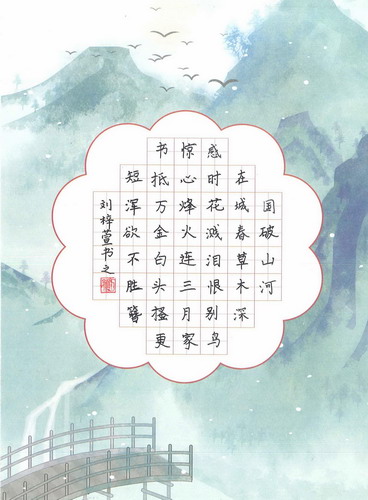 国破山河
在城春草木深
感时花溅泪恨别鸟
惊心烽火连三月家
书抵万金白头搔更
短浑欲不胜簪
刘梓萱书之